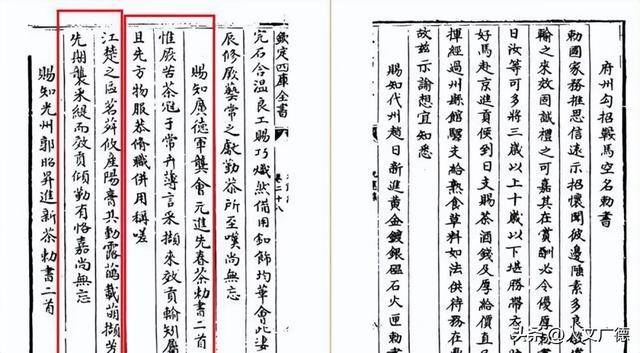 府州勾招鞍馬空名勅書
勅國家務推恩信遠示招懷聞彼邊陲素多良
輸之來效固誠禮之可嘉其在賞酬必令優厚
日汝等可多將三歲以上十歲以下堪勝帶衣
好馬赴京進貢便到日支賜茶酒錢及厚給價直
揮經過州縣館驛支給熟食草料如法供待務在
故兹示諭想宜知悉
賜知代州趙日新進黄金鍍銀匣石火匣勅書
欽定四庫全書
卷二十八
完石含温良工賜巧熾然備用釦飾均華會此婆
辰修厥藝常之獻勤恭所至嘆尚無忘
賜知廣德軍龔會元進先春茶勅書二首
惟厥苦茶冠于常卉薄言采擷來效貢輸知屬
且先方物服恭脩職併用稱嗟
江楚之區茗荈攸產陽膏其動露載萌擷芳
先期襲采緹而效貢傾勤有恪嘉尚無忘
賜知光州郭昭昇進新茶勅書二首
头条 @人文广德